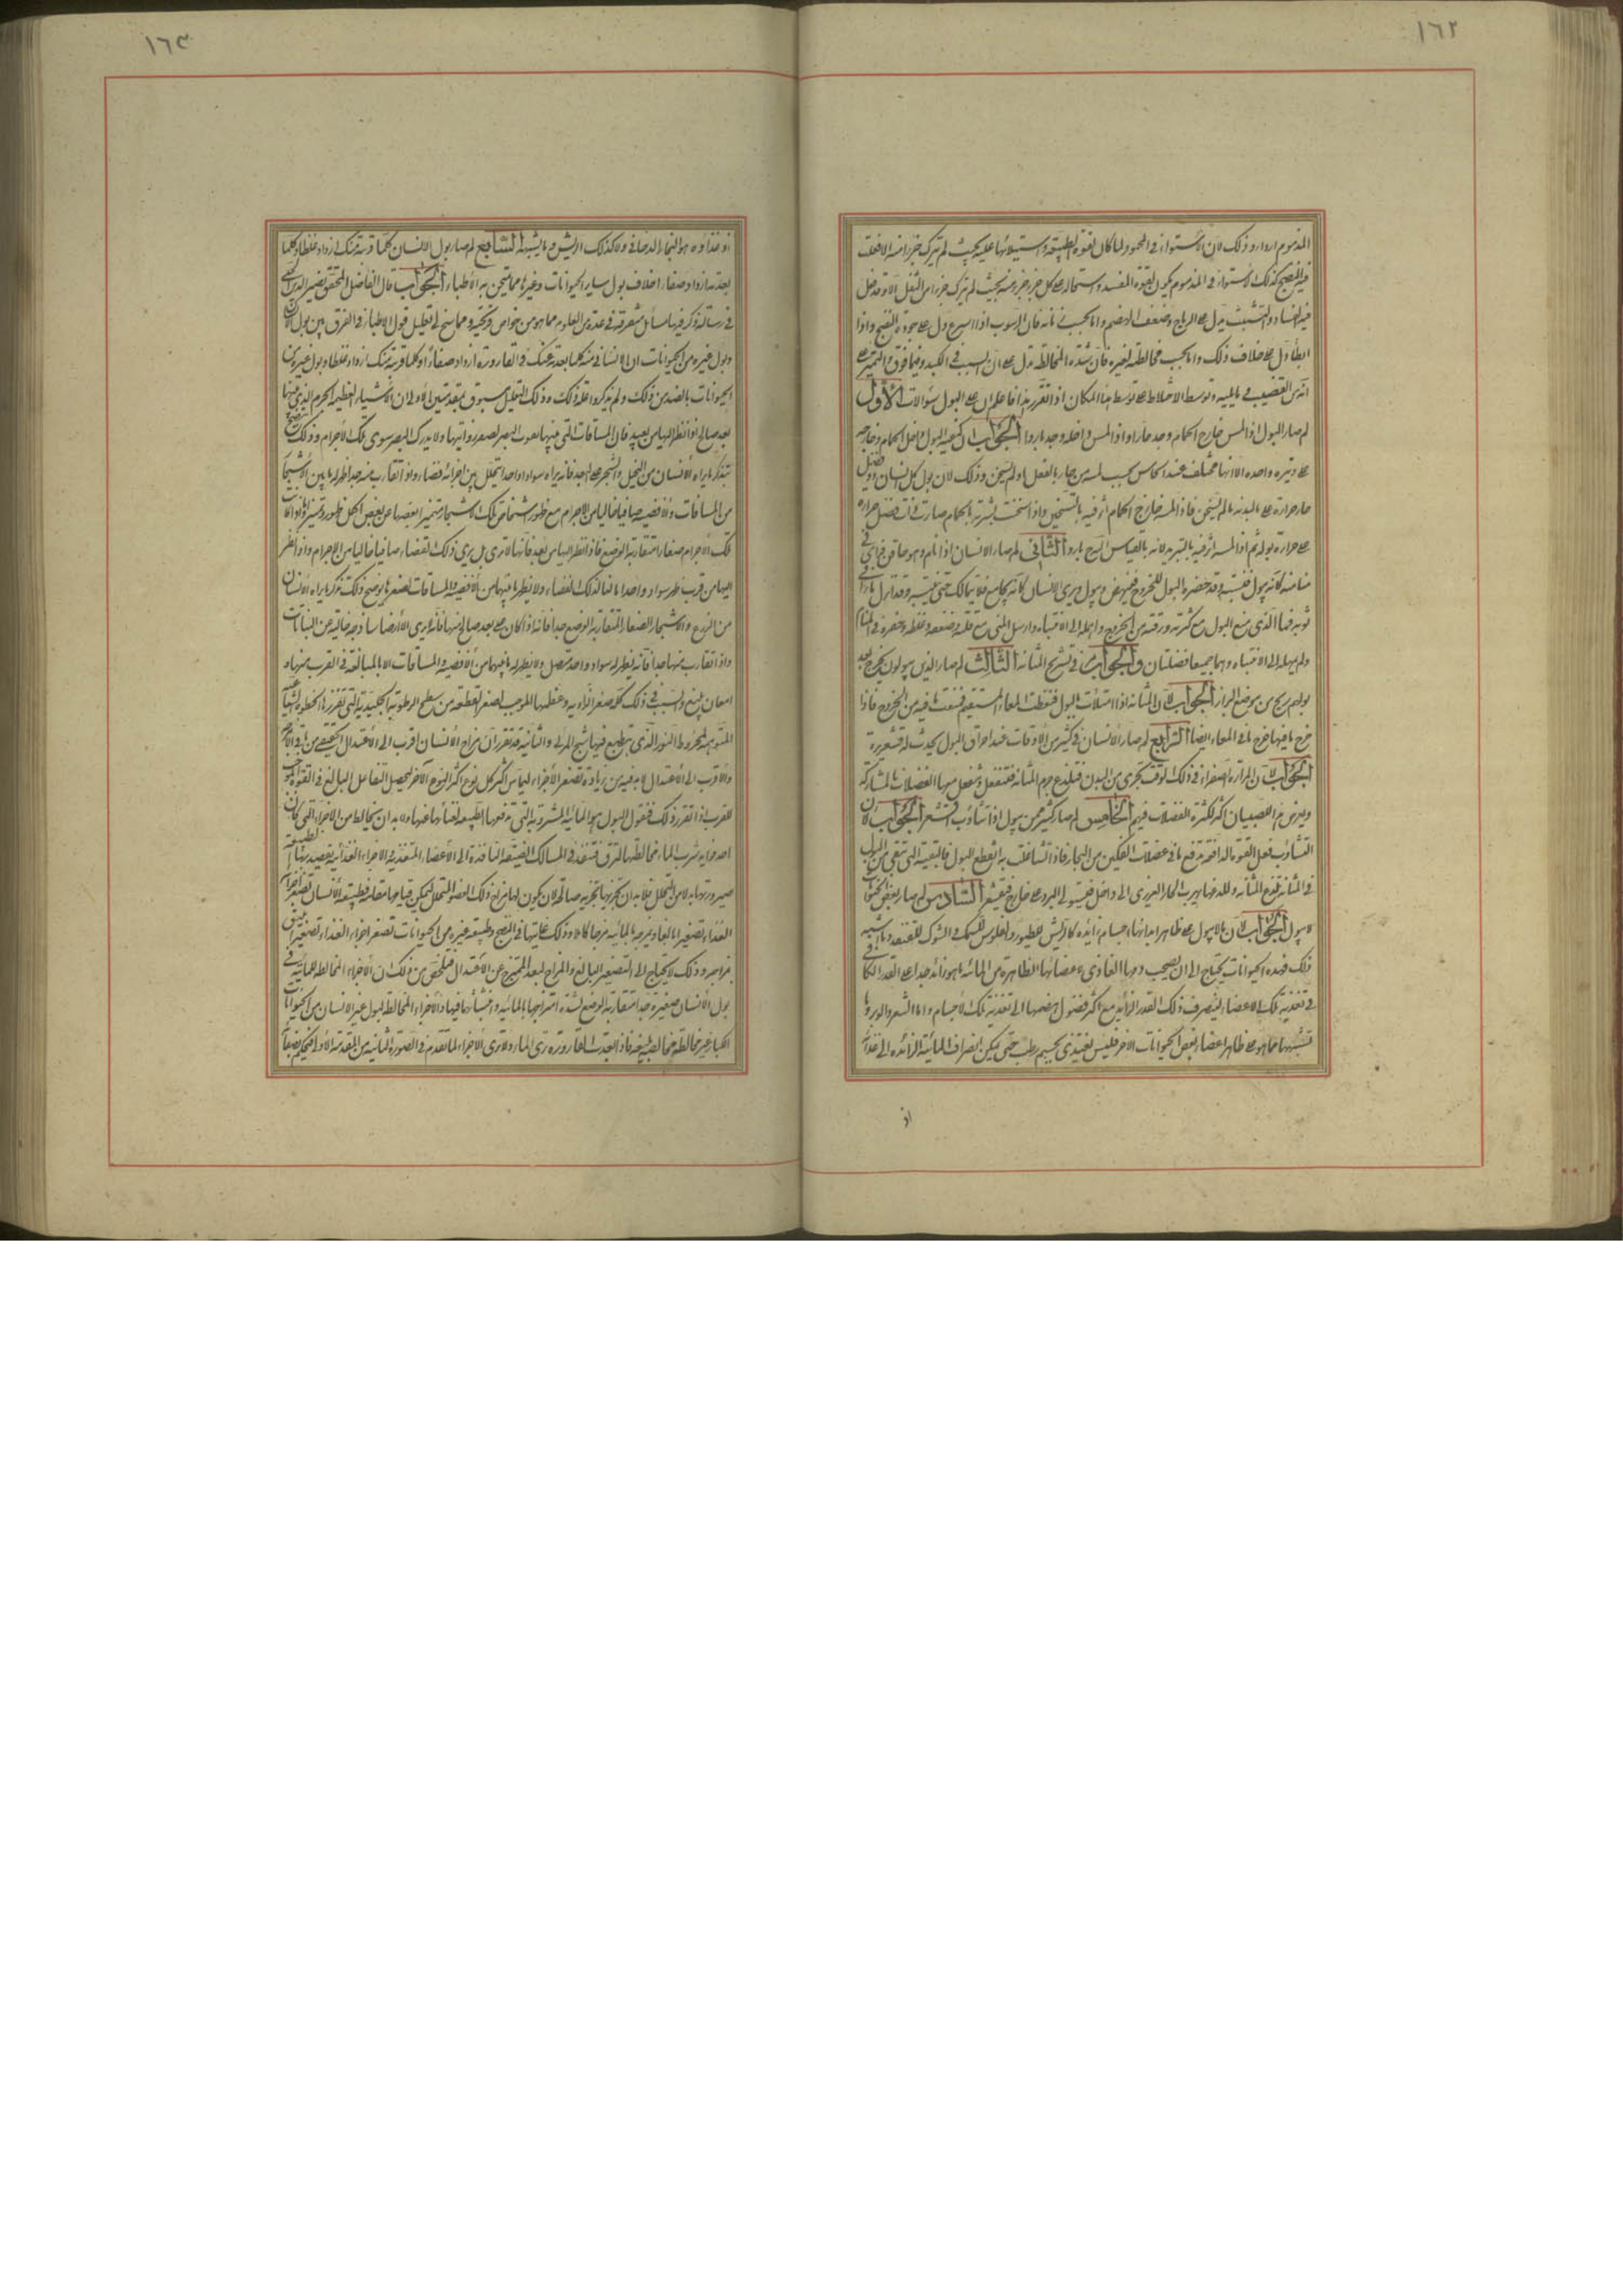 ١٦٢
المذموم اردا وذلك لان الاستواء فى المحمود لما كان لقوة الطبيعة واستيلائها عليه بحيث لم تترك جزءا منه الا فعلت
فيه النضج كذلك الاستواء فى المذموم يكون لقوة المفسد واستيلائه على كل جزء جزء منه بحيث لم يترك جزءا من الثفل الا وقد فعل
فيه الفساد والتشتت يدل على الرياح وضعف الهضم واما بحسب زمانه فان الرسوب اذا اسرع دل على جودة النضج واذا
ابطا دل على خلاف ذلك واما بحسب مخالطته لغيره فان شدة المخالطة تدل على ان السبب فى الكبد وما فوق والتميز على
انه من القضيب وما يليه وتوسط الاختلاط على توسط هذا المكان اذا تقرر هذا فاعلم ان على البول سؤالات الأول
لم صار البول اذا لمس خارج الحمام وجد حارا واذا لمس داخله وجد باردا الجواب ان كيفية البول داخل الحمام وخارجه
على وتيرة واحدة الا انها تختلف عند الحاس بحسب لمسه من حار بالفعل او لم يسخن وذلك لان بول كل انسان فضل
حار حرارته على بالبدنه ما لم يسخن فاذا لمسه خارج الحمام أثر فيه بالتسخين واذا سخنت بشرته بالحمام صارت ذات فضل حرارة
على حرارة بوله ثم اذا لمسه أثر فيه بالتبريد لانه بالقياس اليه بارد الثانى لم صار الانسان اذا نام وهو حاقن فراى فى
منامه كانه يبول فينتبه وقد حضره البول للخروج فينهض ويبول ويرى الانسان كانه يجامع فلا يتمالك حتى ينتبه وقد انزل ما رآى فى
ثوبه فما الذى منع البول مع كثرته ورقته من الخروج وامهله الى الانتباه وارسل المنى مع قلته وضعفه وغلظه وحقره فى المنام
ولم يمهله الى الانتباه وهما جميعا فضلتان والجواب فى تشريح المثانة الثالث لم صار الذين يبولون يخرج بعد
بولهم ريح من موضع البراز الجواب لان المثانة اذا امتلأت بالبول ضغطت المعاء المستقيم فمنعت ما فيه من الخروج فاذا
خرج ما فيها خرج ما فى المعاء ايضا الرابع لم صار الانسان فى كثير من الاوقات عند احراق البول يحدث له قشعريرة
الجواب لان المرارة الصفراء فى ذلك الوقت تجرى من البدن فتلذع جرم المثانة فتنفعل وتنفعل معها العضلات بالمشاركة
ويعرض للصبيان اكثر لكثرة الفضلات فيهم الخامس لم صار كثير ممن يبول اذا تثاوب اقشعر الجواب لان
التثاوب فعل القوة الدافعة تدفع ما فى عضلات الفكين من البخار فاذا تشاغلت به انقطع البول فالبقية التى تبقى من البول
فى المثانة تلذع المثانة وللذعها يهرب الحار الغريزى الى داخل فيستولى البرد على خارج فيقشعر السادس لم صار بعض الحيوان
لا يبول الجواب لان ما لا يبول على ظاهر ابدانها اجسام زائدة كالريش للطيور والفلوس للسمك والشوك للقنفذ وما اشبه
ذلك فهذه الحيوانات تحتاج الى ان يصحب دمها الغاذى لاعضائها الظاهرة من المائية ما هو زائد جدا على القدر الكافى
فى تغذية تلك الاعضاء لينصرف ذلك القدر الزائد مع اكثر فضول هضمها الى تغذية تلك الاجسام واما الشعر والوبر وما
تشبهها مما هو على ظاهر اعضاء بعض الحيوانات الاخر فليس يغتذى بجسم رطب حتى يمكن انصراف المائية الزائدة الى غذائه
اذ
١٦٣
اذ غذاؤه هو البخار الدخانى ولا كذلك الريش وما يشبهه السابع لم صار بول الانسان كلما قربته منك ازداد غلظا وكلما
بعدته ازداد صفاء بخلاف بول ساير الحيوانات وغيرها مما يمتحن به الاطباء الجواب قال الفاضل المحقق نصير الدين الطوسى
فى رسالة ذكر فيها مسائل متفرقة فى عدة من العلوم مما هو من خواص قريحته ومما سنح لى تعليل قول الاطباء فى الفرق بين بول الانسان
وبول غيره من الحيوانات ان الانسانى منه كلما بعدته عنك فى القارورة ازداد صفاء او كلما قربته منك ازداد غلظا وبول غيره من
الحيوانات بالضد من ذلك ولم يذكروا علة ذلك وذلك التعليل مسبوق بمقدمتين الاولى ان الاشياء العظيمة الجرم الذى بينها
بعد صالح اذا نظر اليها من بعيد فان المسافات التى بينها تفوت البصر لصغر زواياها ولا يدرك البصر سوى تلك الاجرام وذلك يتضح
بتذكر ما يراه الانسان من النخيل والشجر على البعد فانه يراه سوادا واحدا يتخلل بين اجزائه فضاء واذا تقارب منه جدا ظهر له ما بين الاشجار
من المسافات والافضية صافيا خاليا من الاجرام مع ظهور اشخاص تلك الاشجار متميزا بعضها عن بعض اكمل ظهور وتميز واذا كانت
تلك الاجرام صغارا متقاربة الوضع فاذا نظر اليها من بعد فانها لا ترى بل يرى ذلك الفضاء صافيا خاليا من الاجرام واذا نظر
اليها من قرب ظهر سواد واحد مانعا لذلك الفضاء ولا يظهر ما بينها من الافضية والمسافات لصغرها يوضح ذلك تذكر ما يراه الانسان
من الزرع والاشجار الصغار المتقاربة الوضع جدا فانه اذا كان على بعد صالح منها فانه يرى الارض ساذجة خالية عن النباتات
واذا تقارب منها جدا فانه يظهر له سواد واحد متصل ولا يظهر له ما بينها من الافضية والمسافات الا بالمبالغة فى القرب منها و
امعان يمنع والسبب فى ذلك كله صغر الزاوية وعظمها الموجب لصغر القطعة من سطح الرطوبة الجليدية التى تفرزها الخطوط الشعاعية
المتوهمة لمخروط النور الذى ينطبع فيها شبح المرئى والثانية قد تقرر ان مزاج الانسان اقرب الى الاعتدال الحقيقى من باقى الامزجة
والاقرب الى الاعتدال لا بد فيه من زيادة تصغر الاجزاء ليماس اكثر كل نوع اكثر النوع الآخر ليحصل التفاعل البالغ فى القوة الموجب
للقرب اذا تقرر ذلك فنقول البول هو المائية المشروبة التى تدفعها الطبيعة لغنائها عنها ولا بد ان يخالط من الاجزاء التى كان
احد فوايد شرب الماء مخالطتها لترق فتنفذ فى المسالك الضيقة النافذة الى الاعضاء المتغذية والاجزاء الغذائية تقصد بها الطبيعة
صيرورتها بدلا من المتحلل فلا بد ان تجزيها تجزية صالحة لان يكون لها مزاج ذلك العضو المتحلل ليمكن قيامها مقامه فطبيعة الانسان تصغر اجزاء
الغذاء تصغيرا بالغا وتمزجه بالمائية مزجا كاملا وذلك غايتها فى النضج وطبيعة غيره من الحيوانات تصغر اجزاء الغذاء تصغيرا يليق
بمزاجه وذلك لا يحتاج الى التصغير البالغ والمزاج لبعد الممتزج عن الاعتدال فتلخص من ذلك ان الاجزاء المخالطة للمائية فى
بول الانسان صغيرة جدا متقاربة الوضع لشدة امتزاجها بالمائية وانبثاثها فيها والاجزاء المخالطة لبول غير الانسان من الحيوانات
الكبار غير مخالطة مخالطة شديدة فاذا بعدت القارورة رؤى الماء ولا ترى الاجزاء لما تقدم فى الصورة الثانية من المقدمة الاولى فيحكم بصفائه